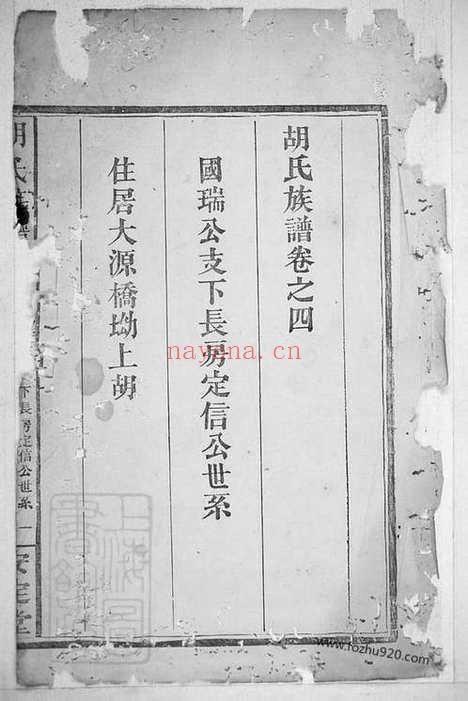 胡氏族譜卷之四
國瑞公支下長房定信公世系
住居大源橋坳上胡
胡氏
下長房定信公世系
一
安定堂
nayona.cn
www.fozhu920.com